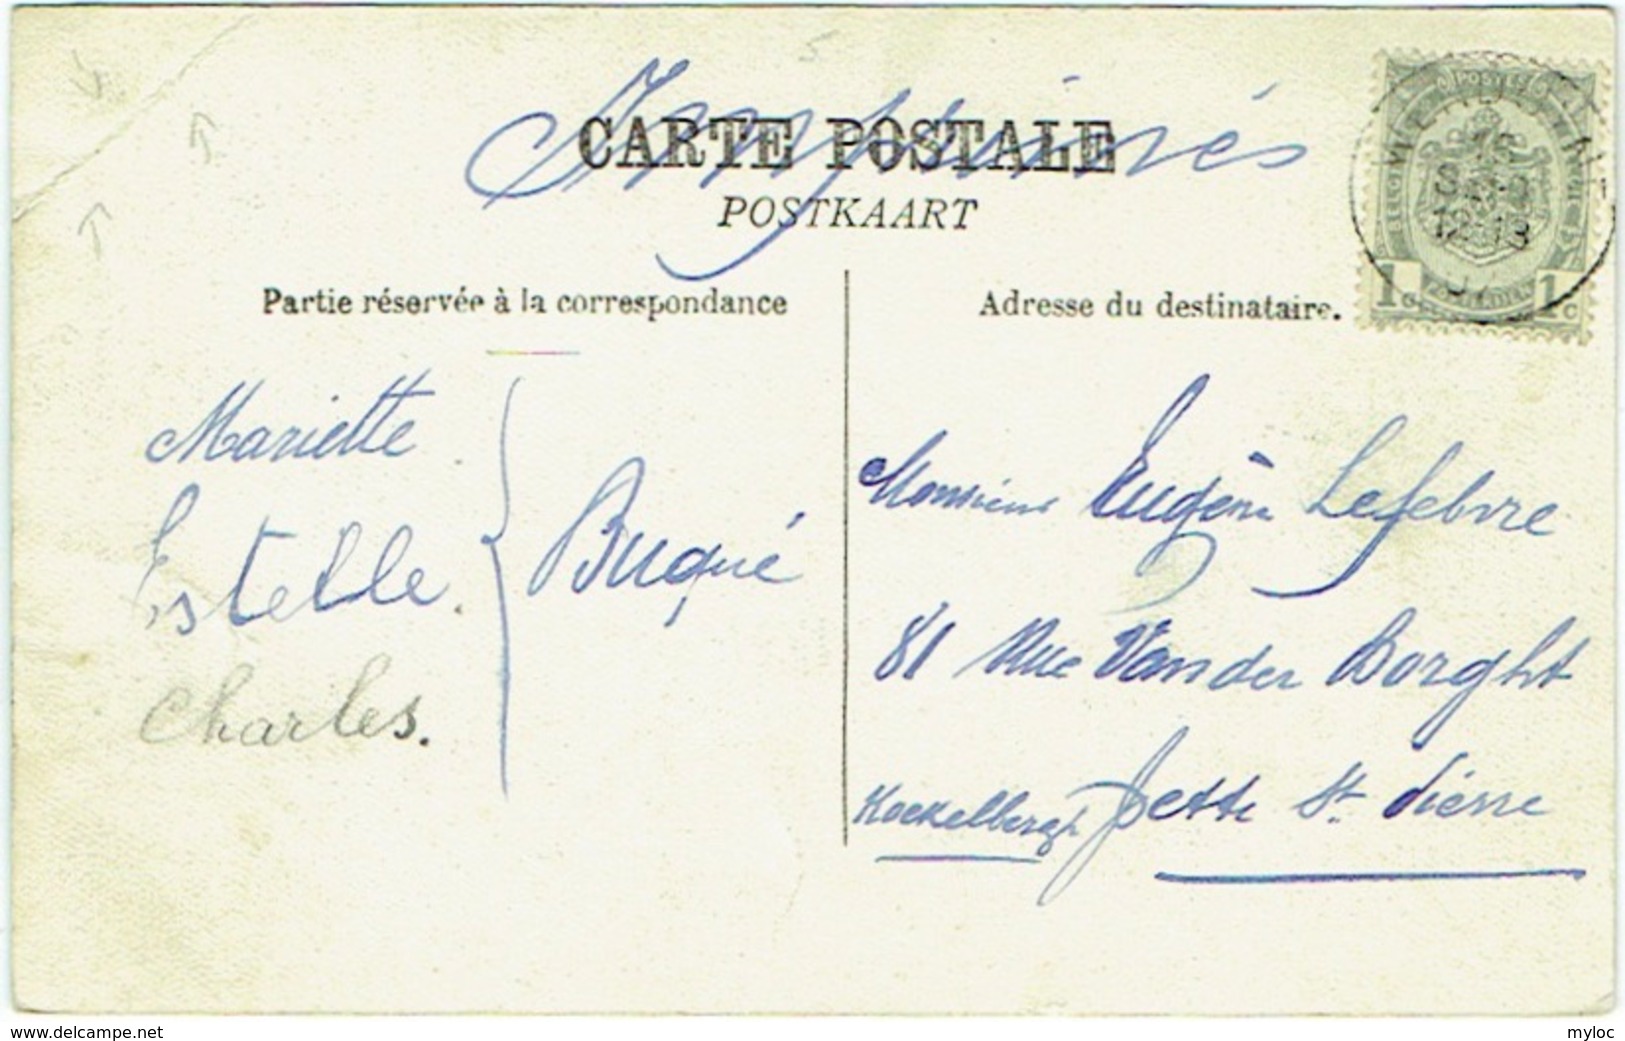 5
Imprimés
CARTE POSTALE
POSTKAART
Partie réservée à la correspondance
Adresse du destinataire.
POSTES
12-13
1c 1c
Mariette
Estelle.
Charles.
Buqué
Monsieur Eugène Lefebvre
81 Rue Vander Borght
Koekelbergh Jette St. Pierre
www.delcampe.net
myloc